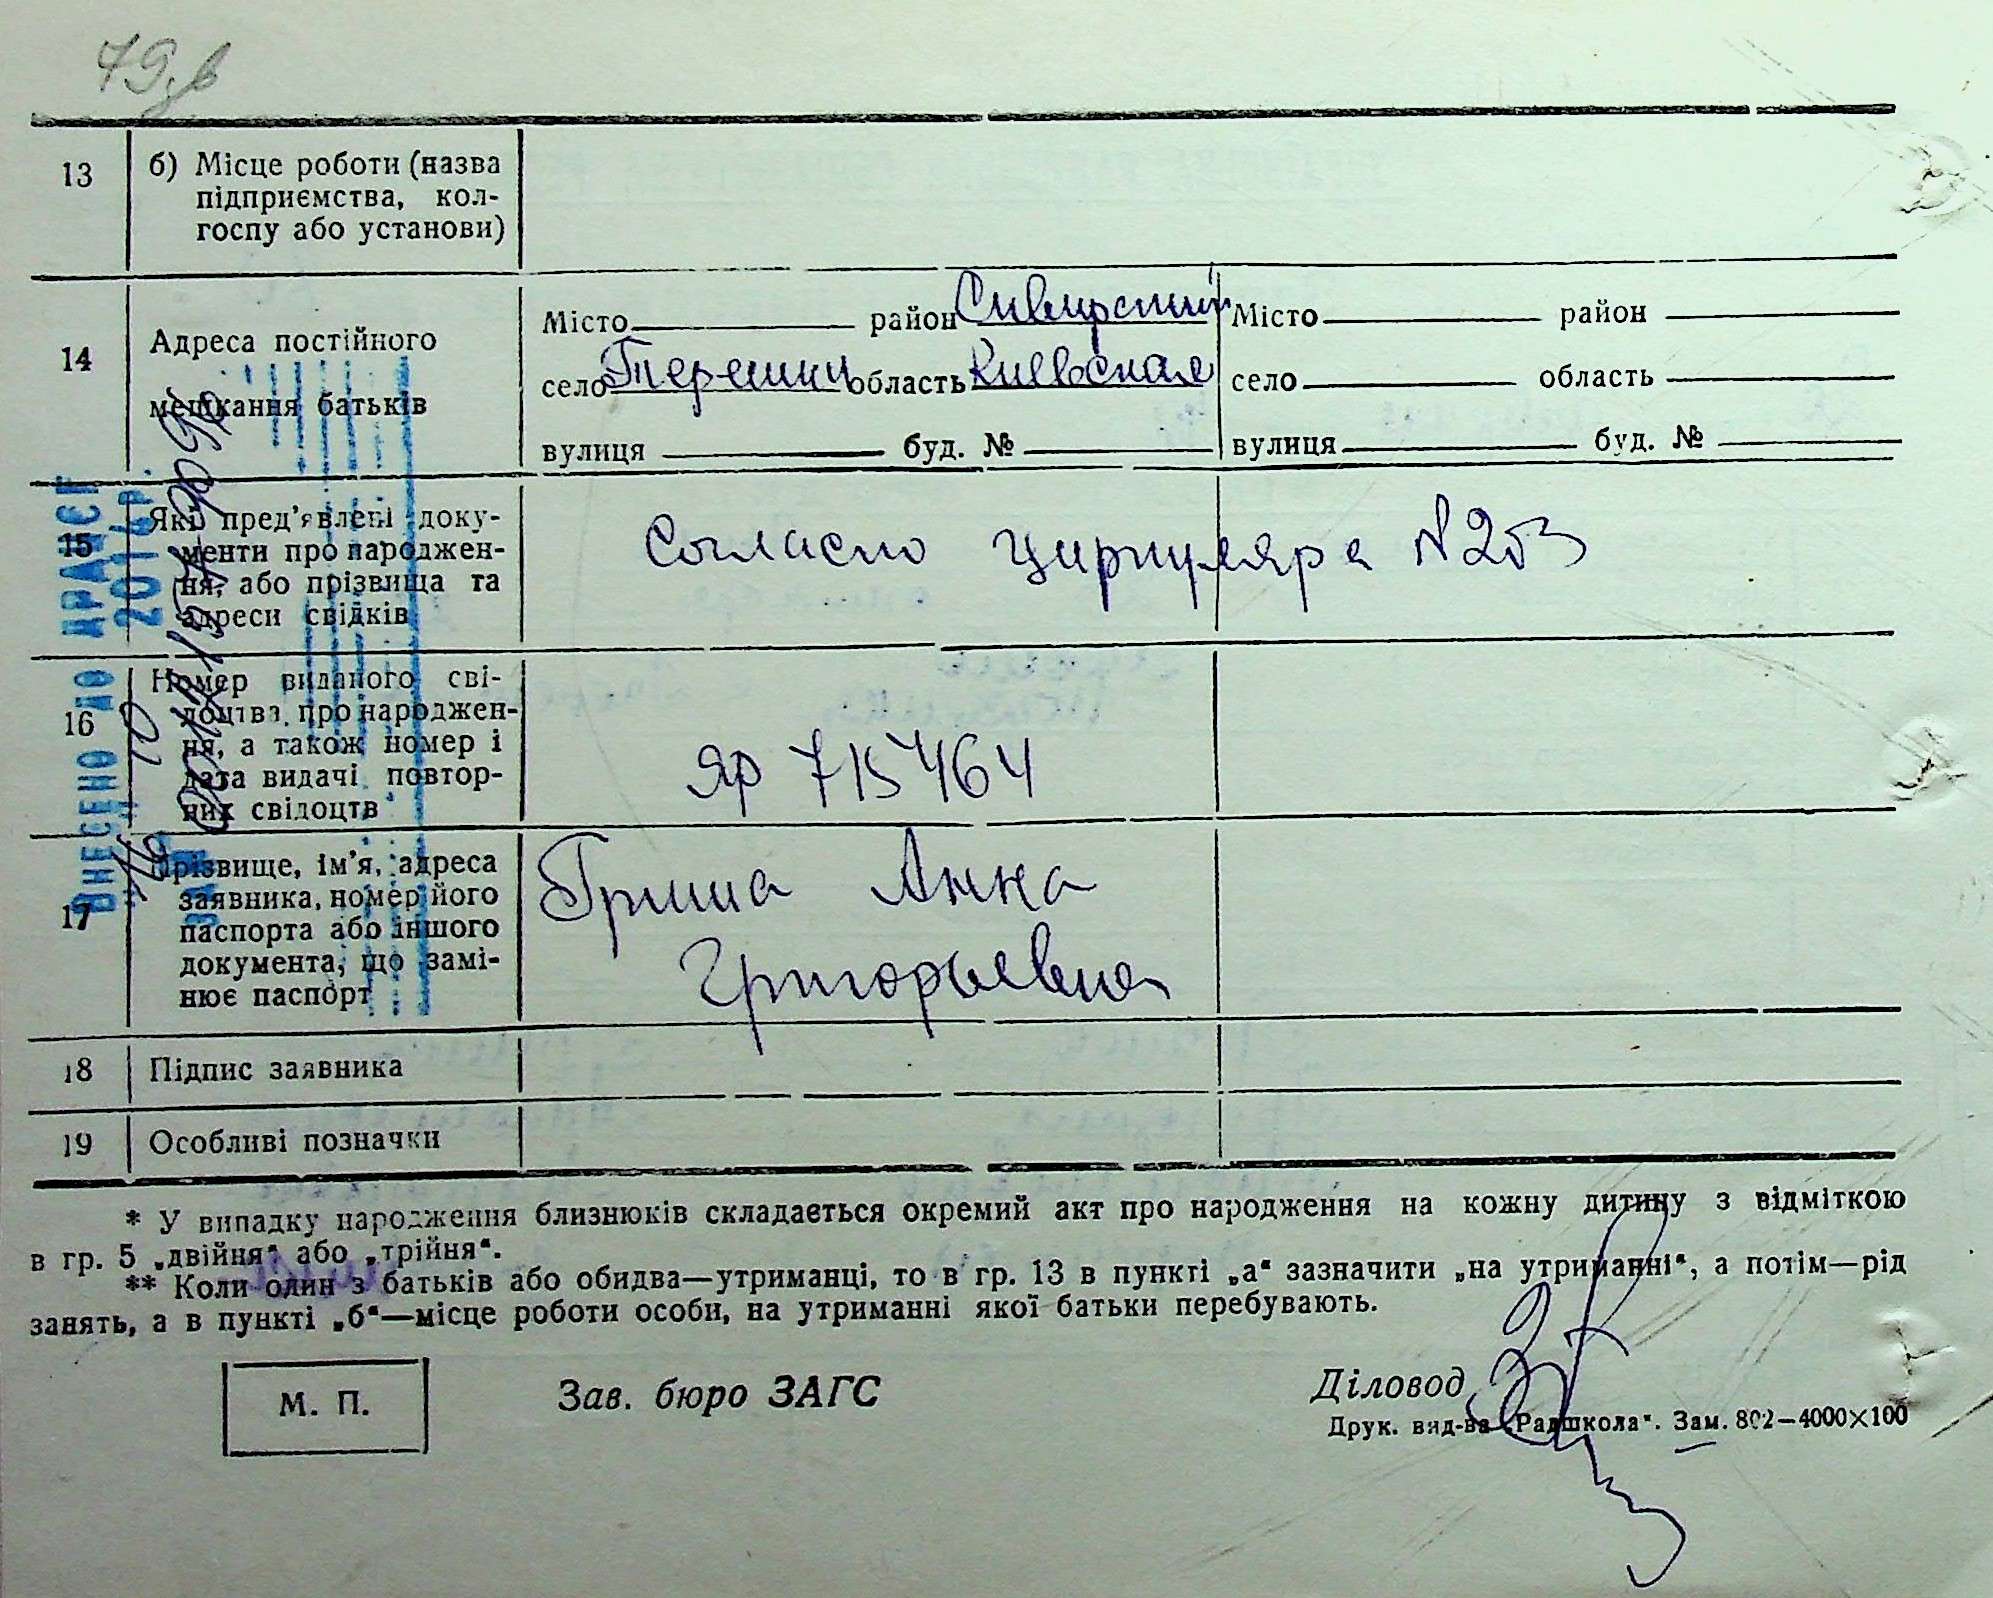 79зв
13 б) Місце роботи (назва
підприємства, кол-
госпу або установи)
14 Адреса постійного
мешкання батьків
Місто район Сквирский Місто район
село Терешки область Киевская село область
вулиця буд. № вулиця буд. №
15 Які пред'явлені доку-
менти про народжен-
ня, або прізвища та
адреси свідків
Согласно циркуляра N 203
16 Номер виданого сві-
доцтва про народжен-
ня, а також номер і
дата видачі повтор-
них свідоцтв
яр 715464
17 Прізвище, ім'я, адреса
заявника, номер його
паспорта або іншого
документа, що замі-
нює паспорт
Гриша Анна
Григорьевна
18 Підпис заявника
19 Особливі позначки
ВНЕСЕНО ДО ДРАЦСГ
2014р.
* У випадку народження близнюків складається окремий акт про народження на кожну дитину з відміткою
в гр. 5 „двійня“ або „трійня“.
** Коли один з батьків або обидва—утриманці, то в гр. 13 в пункті „а“ зазначити „на утриманні“, а потім—рід
занять, а в пункті „б“—місце роботи особи, на утриманні якої батьки перебувають.
М. П. Зав. бюро ЗАГС Діловод
Друк. вид-ва „Радшкола“. Зам. 802—4000×100